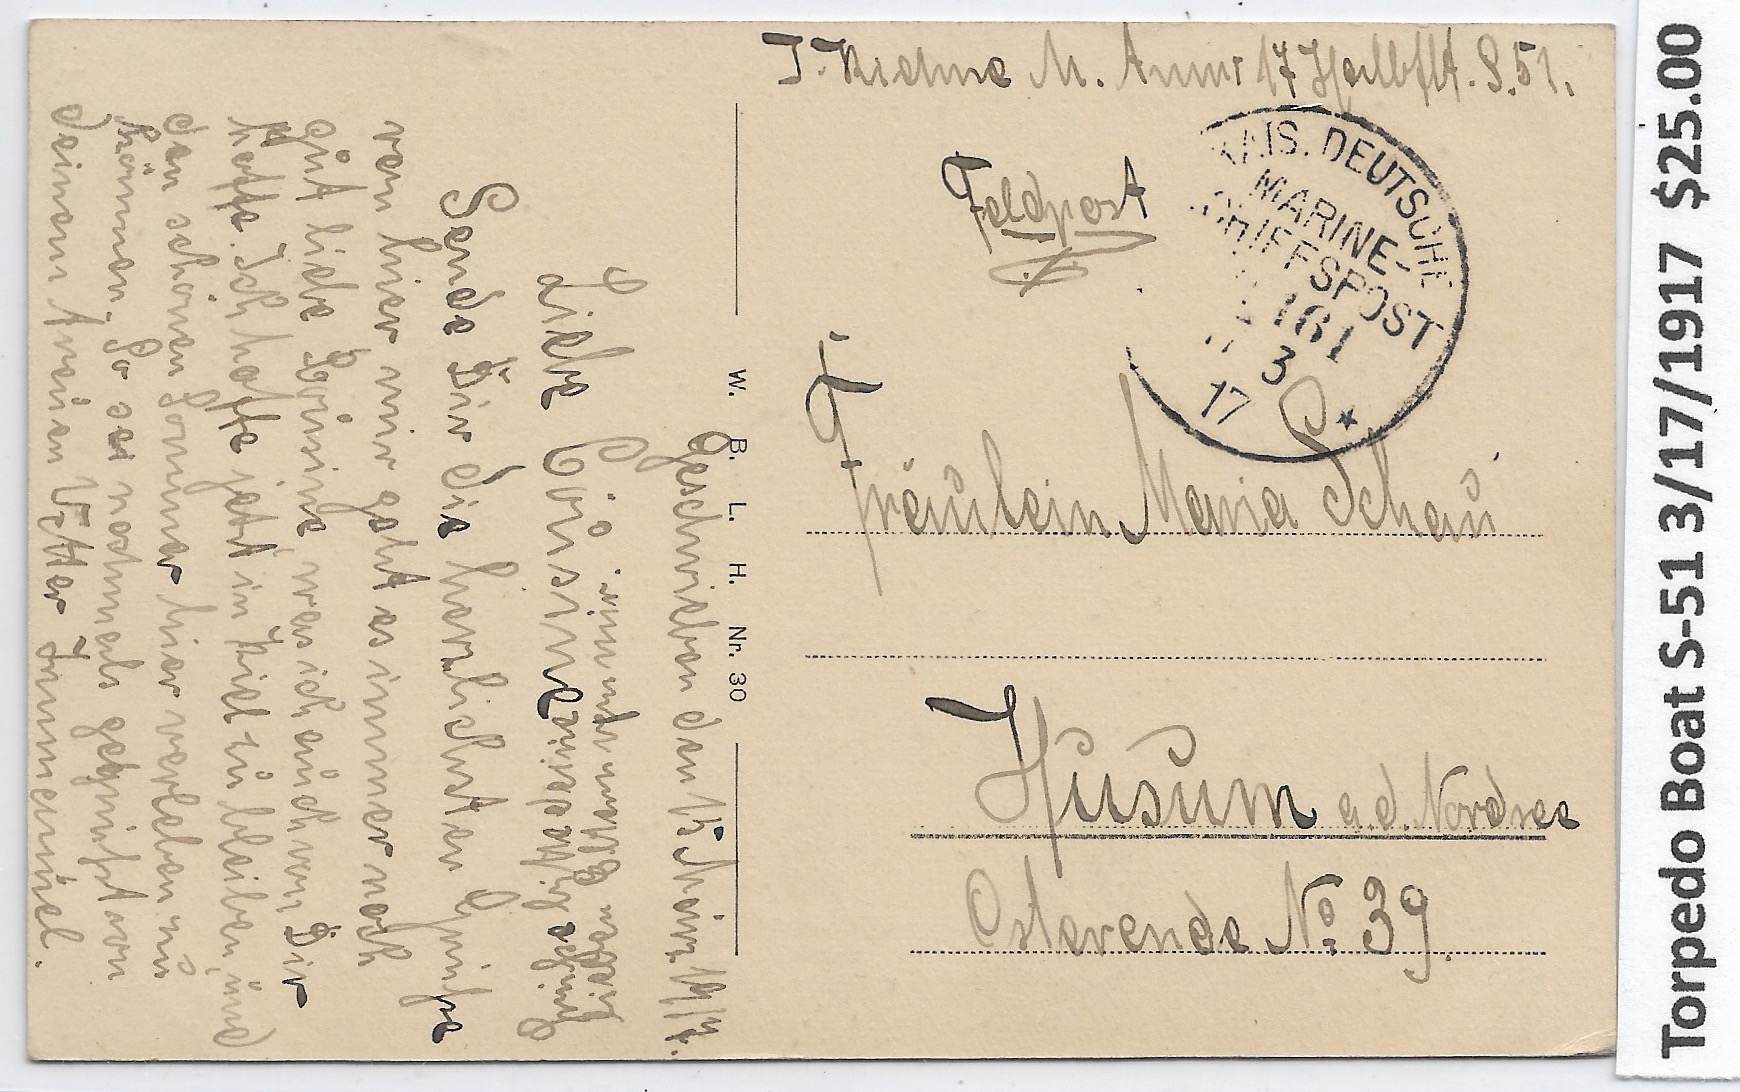 Feldpost
KAIS. DEUTSCHE
MARINE-
SCHIFFSPOST
161
3
17
Fräulein Maria Schaü
Hüsüm a. d. Nordsee
Osterende No. 39.
W. B. L. H. Nr. 30
Geschrieben den 15 März 1917.
Liebe Cousine
Sende Dir die herzlichsten Grüße
von hier mir geht es immer noch
güt liebe Cousine was ich aüch von Dir
hoffe. Ich hoffe jetzt in Kiel zü bleiben, ünd
den schönen Sommer hier verleben zü
können. So sei nochmals gegrüßt von
Deinem treüen Vetter
Grüße bitte deine
lieben Eltern
Torpedo Boat S-51 3/17/1917 $25.00